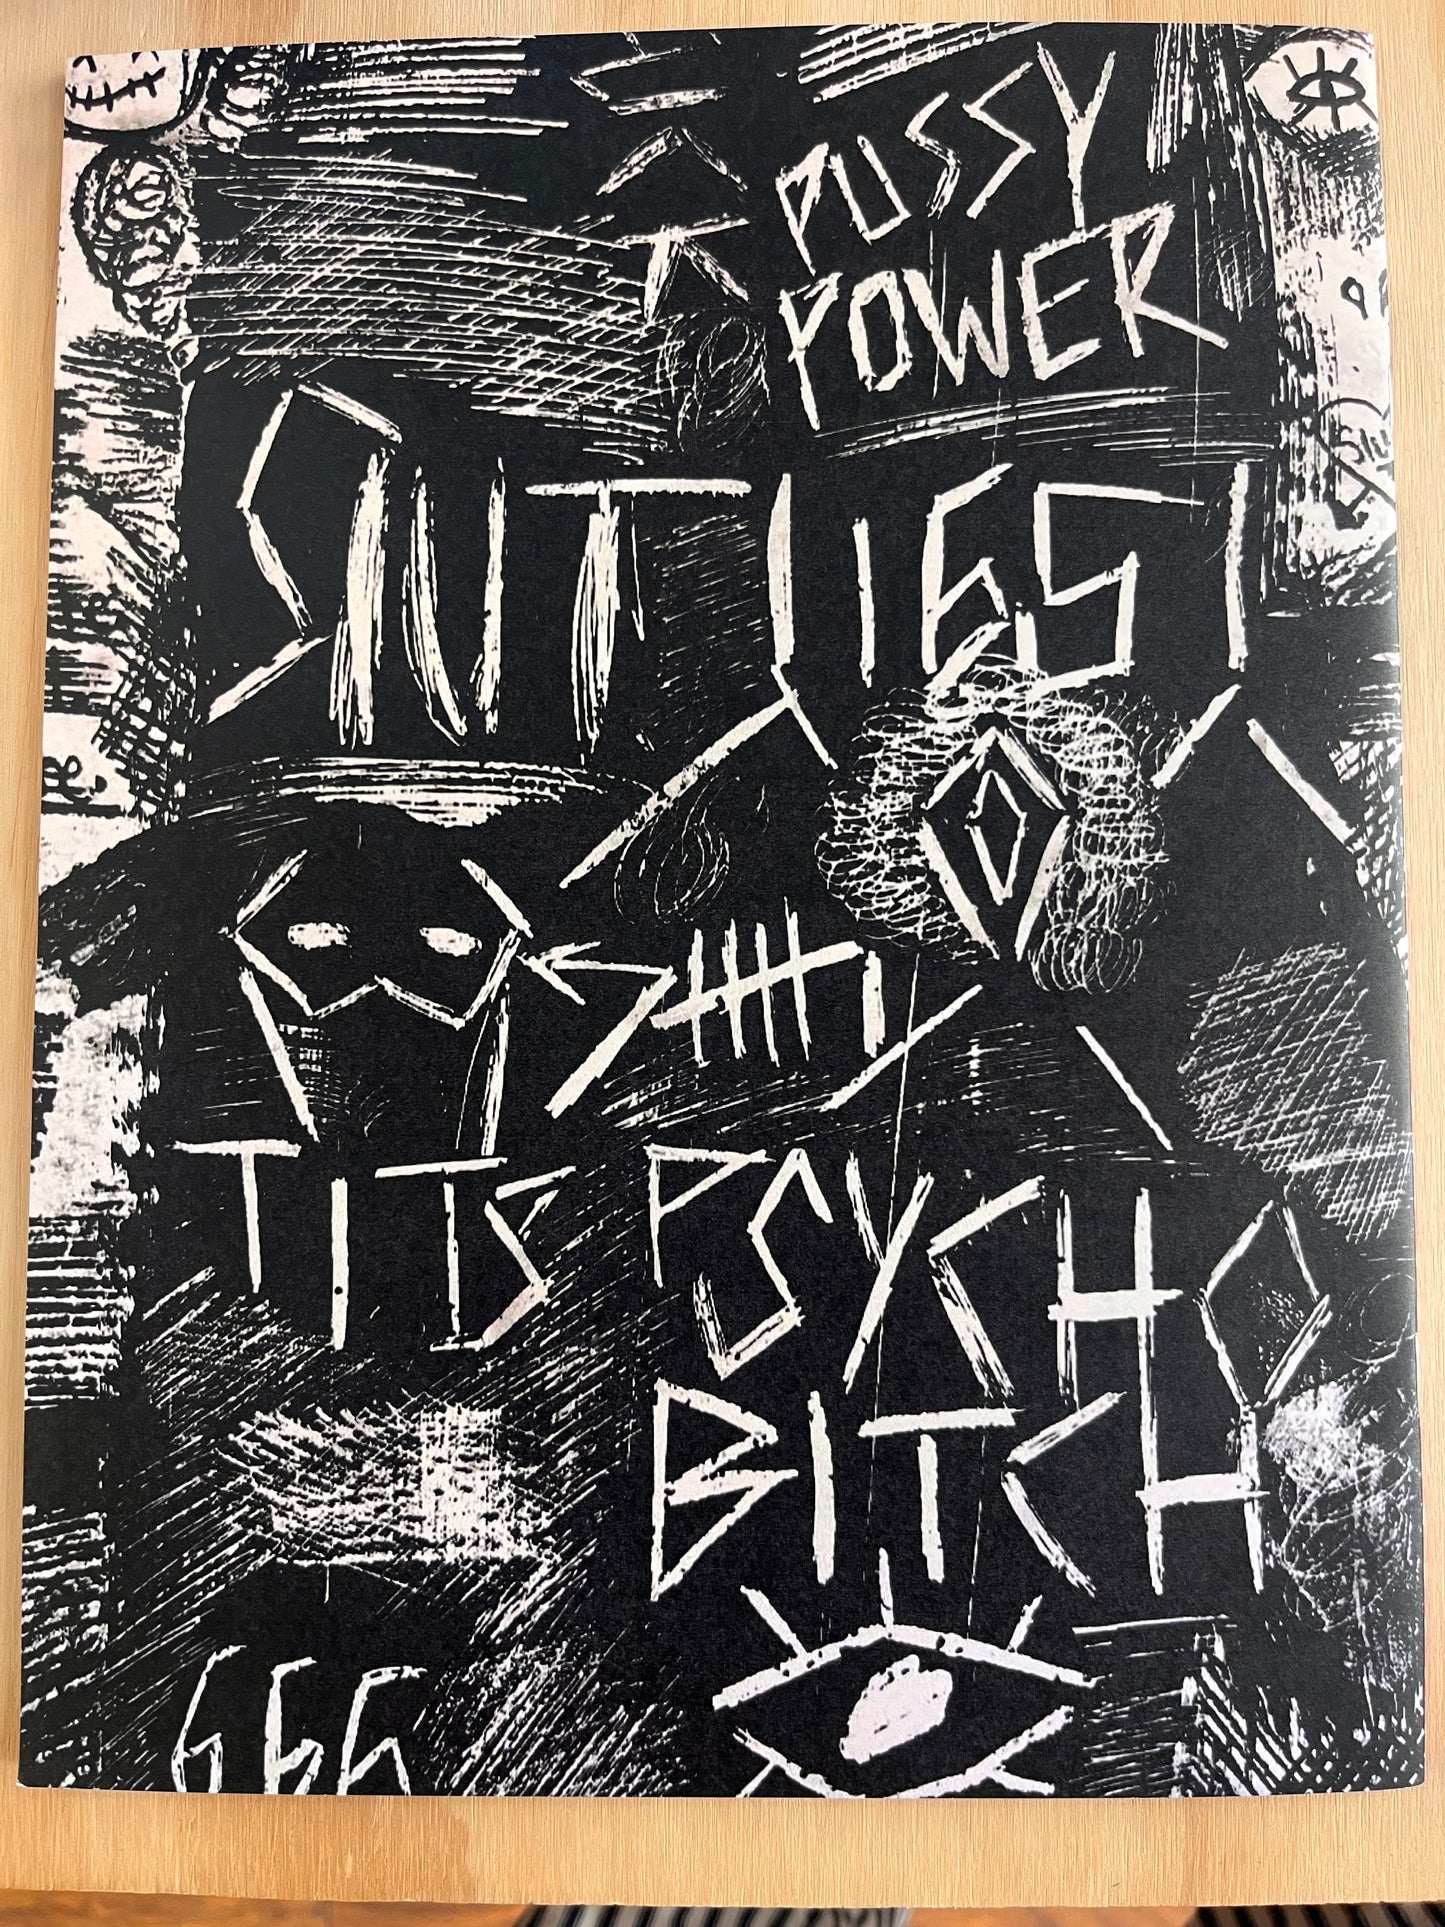 PUSSY
POWER
SLUT LIES
TITS PSYCHO
BITCH
666